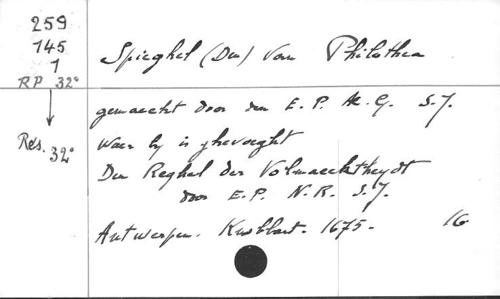 259
145
1
RP 32°
Rés. 32°
Spieghel (Den) van Philothea
gemaeckt door den E. P. M. G. S. J.
Waer by is ghevoeght
Den Reghel der Volmaecktheydt
door E. P. N. R. S. J.
Antwerpen. Knobbart. 1675. 16